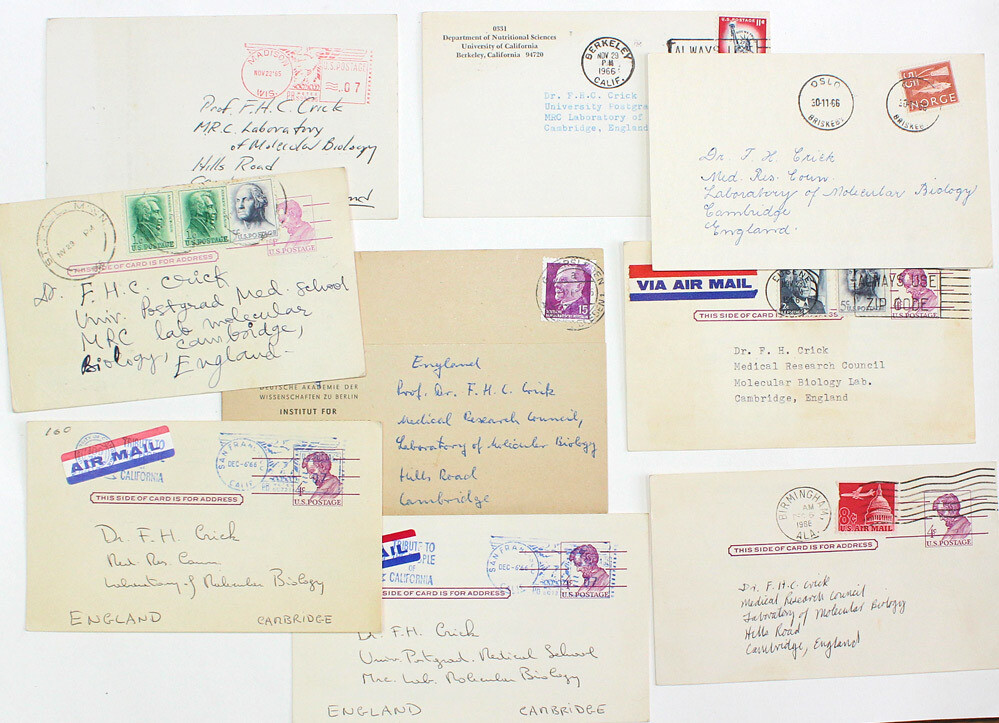 MADISON
NOV 22'65
WIS.
U.S. POSTAGE
.07
Prof. F. H. C. Crick
M.R.C. Laboratory
of Molecular Biology
Hills Road
0331
Department of Nutritional Sciences
University of California
Berkeley, California 94720
BERKELEY
NOV 29
PM
1966
CALIF.
U.S. POSTAGE 11¢
ALWAYS USE
Dr. F.H.C. Crick
University Postgra
MRC Laboratory of
Cambridge, England
OSLO
30-11-66
BRISKEBY
NORGE
BRISKEBY
Dr. F. H. Crick
Med. Res. Coun
Laboratory of Molecular Biology
Cambridge
England.
1¢
U.S. POSTAGE
1¢
U.S. POSTAGE
U.S. POSTAGE
U.S. POSTAGE
THIS SIDE OF CARD IS FOR ADDRESS
Dr. F.H.C. Crick
Univ. Postgrad Med. School
MRC lab molecular
Biology, Cambridge,
England.
15
DEUTSCHE AKADEMIE DER
WISSENSCHAFTEN ZU BERLIN
INSTITUT FÜR
England
Prof. Dr. F. H. C. Crick
Medical Research Council,
Laboratory of Molecular Biology
Hills Road
Cambridge
VIA AIR MAIL
ALWAYS USE
ZIP CODE
5¢ U.S. POSTAGE
U.S. POSTAGE
THIS SIDE OF CARD IS
Dr. F. H. Crick
Medical Research Council
Molecular Biology Lab.
Cambridge, England
160
AIR MAIL
TRIBUTE TO
CALIFORNIA
SAN FRAN
DEC-6'66
CALIF.
4¢
U.S. POSTAGE
THIS SIDE OF CARD IS FOR ADDRESS
Dr. F. H. Crick
Med Res. Coun
Laboratory of Molecular Biology
ENGLAND CAMBRIDGE
AIL
TRIBUTE TO
PLE
OF
CALIFORNIA
SAN FRAN
DEC-6'66
U.S. POSTAGE
SIDE OF CARD IS FOR ADDRESS
Dr. F.H. Crick
Univ. Postgrad. Medical School
Mrc. Lab. Molecular Biology
ENGLAND CAMBRIDGE
BIRMINGHAM
AM
1966
ALA.
8¢
U.S. AIR MAIL
4¢
U.S. POSTAGE
THIS SIDE OF CARD IS FOR ADDRESS
Dr. F. H. C. Crick
Medical Research Council
Laboratory of Molecular Biology
Hills Road
Cambridge, England